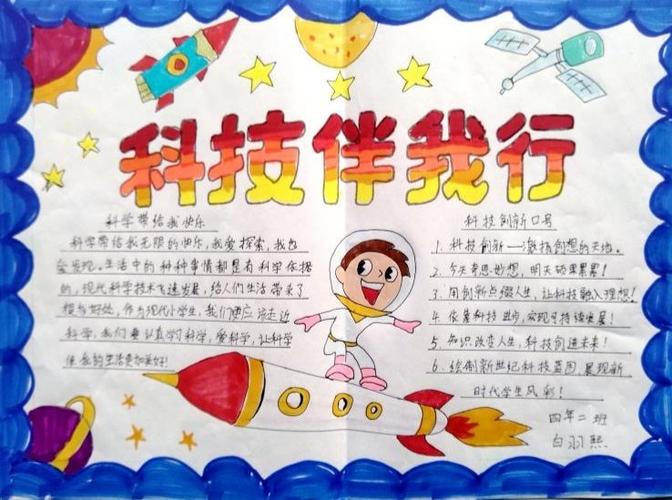 科技伴我行
科学带给我快乐
科学带给我无限的快乐,我爱探索,我也
会发现。生活中的种种事情都是有科学依据
的,现代科学技术飞速发展,给人们生活带来了
相当好处,作为现代小学生,我们更应该走近
科学,我们要认真学习科学,爱科学,让科学
使我的生活更加美好!
科技创新口号
1. 科技创新——激扬创想的天地。
2. 今天奇思妙想,明天硕果累累!
3. 用创新点缀人生,让科技融入理想!
4. 依靠科技进步,实现可持续发展!
5. 知识改变人生,科技创造未来!
6. 绘制新世纪科技蓝图,展现新
时代学生风彩!
四年二班
白羽熙